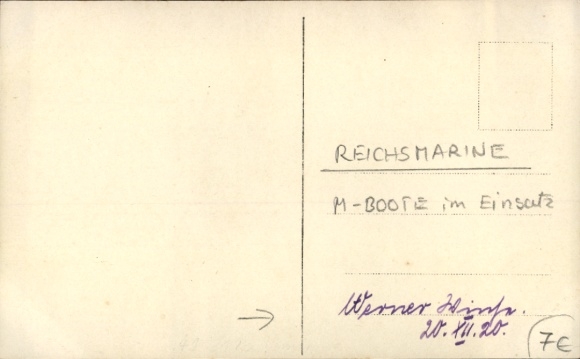 REICHSMARINE
M-BOOTE im Einsatz
Werner
20. XII. 20.
7€